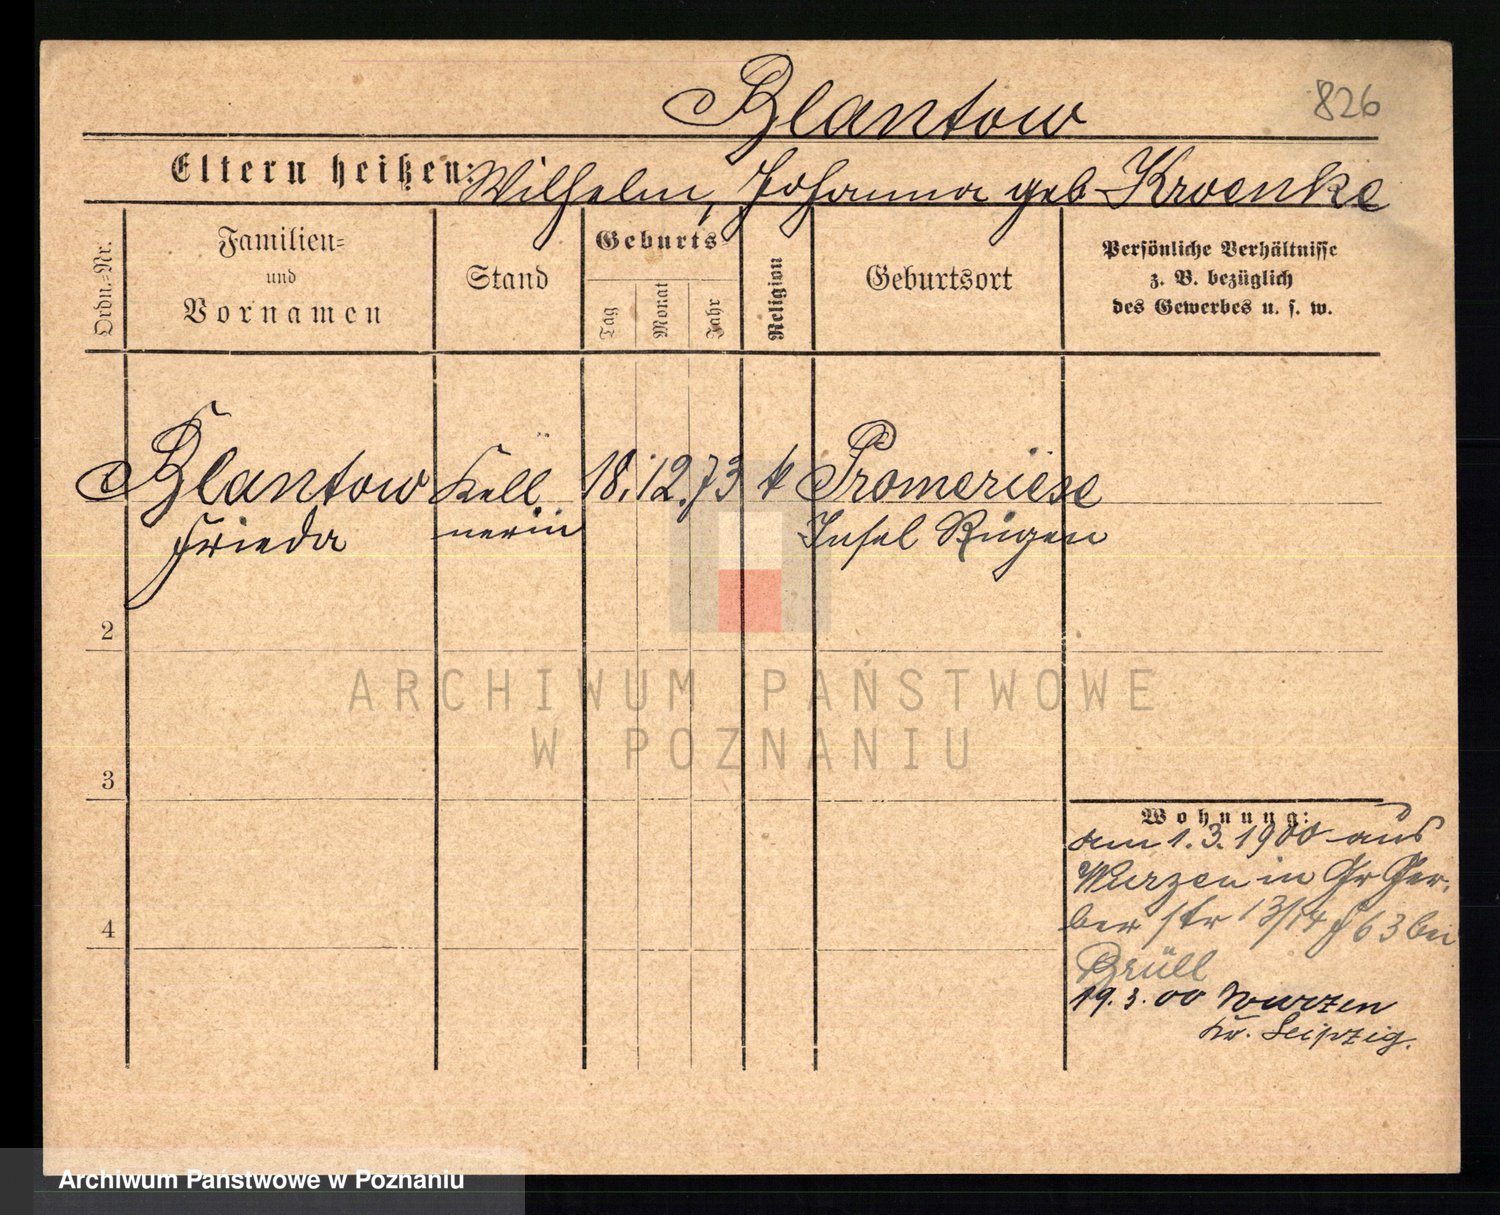 Blantow
826
Eltern heißen: Wilhelm, Johanna geb Kroenke
Ordn.-Nr.
Familien-
und
Vornamen
Stand
Geburts-
Tag
Monat
Jahr
Religion
Geburtsort
Persönliche Verhältnisse
z. B. bezüglich
des Gewerbes u. s. w.
Blantow Kell 18. 12. 73 k Promeriese
Frieda nerin Insel Rügen
2
3
4
Wohnung:
am 1. 3. 1900 aus
Wurzen in Gr Ger-
ber str 13/14 63 bei
Brüll
19. 3. 00 Wurzen
Kr. Leipzig.
ARCHIWUM PAŃSTWOWE
W POZNANIU
Archiwum Państwowe w Poznaniu